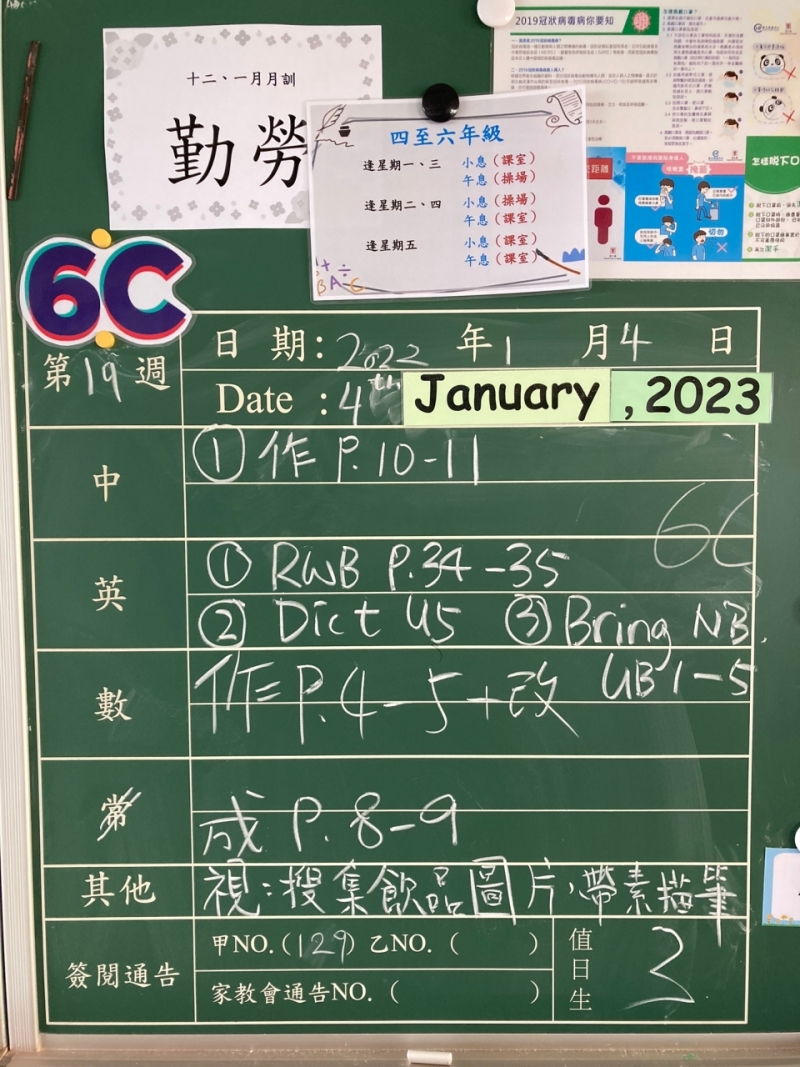 2019冠狀病毒病你要知
十二、一月月訓
勤勞
四至六年級
逢星期一、三 小息(課室)
午息(操場)
逢星期二、四 小息(操場)
午息(課室)
逢星期五 小息(課室)
午息(課室)
BAC
怎樣脫下口
切勿
6C
第19週
日期：2022年1月4日
Date：4th January, 2023
中
① 作 P.10-11
6C
英
① RWB P.34-35
② Dict U5 ③ Bring NB.
UB1-5
數
作 P.4-5+改
常
成 P.8-9
其他
視：搜集飲品圖片，帶素描筆
簽閱通告
甲NO.(129) 乙NO.( )
家教會通告NO.( )
值日生
2